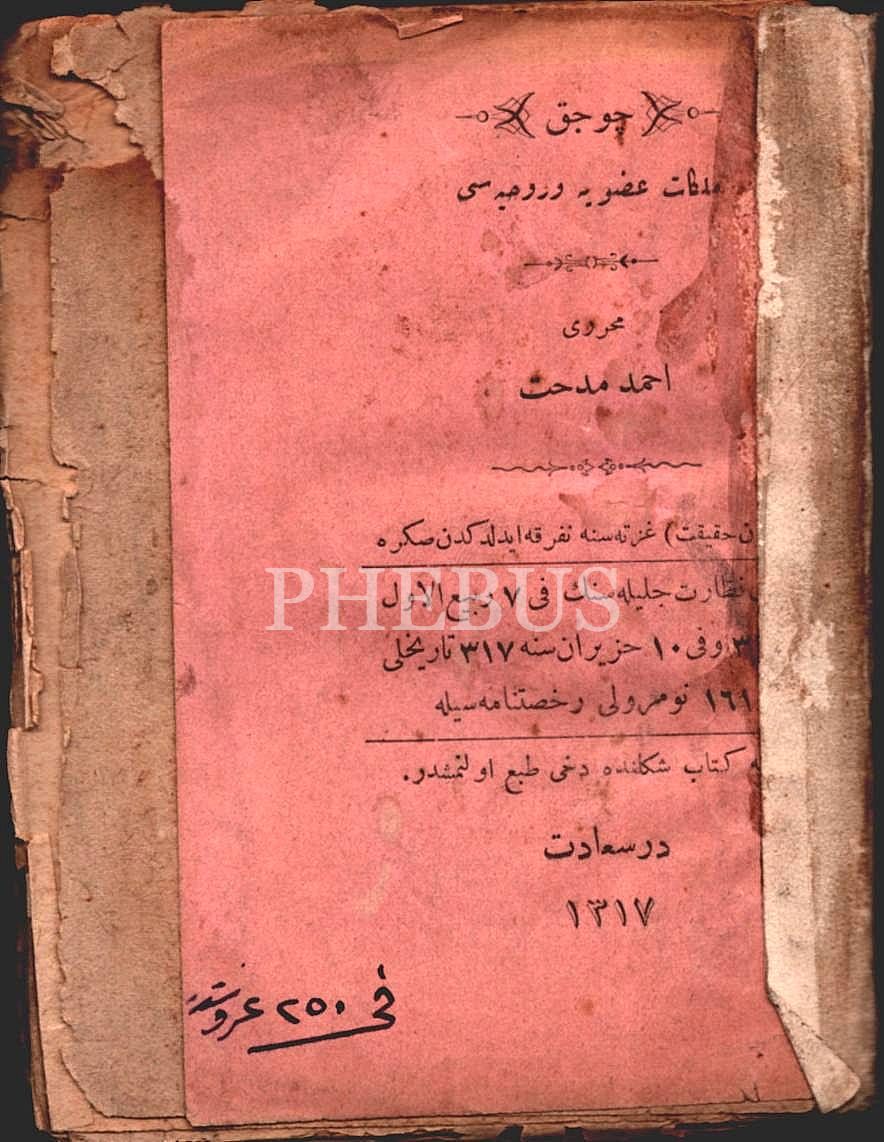 چوجق
ملكات عضويه وروحيه سی
محرری
احمد مدحت
حقيقت) غزته سنه تفرقه ايدلدكدن صكره
نظارت جليله سنك فی ٧ ربيع الاول
وفی ١٠ حزيران سنه ٣١٧ تاريخلی
نومرولی رخصتنامه سيله
كتاب شكلنده دخی طبع اولنمشدر.
درسعادت
١٣١٧
فی ٢٥٠ غروشدر
PHEBUS